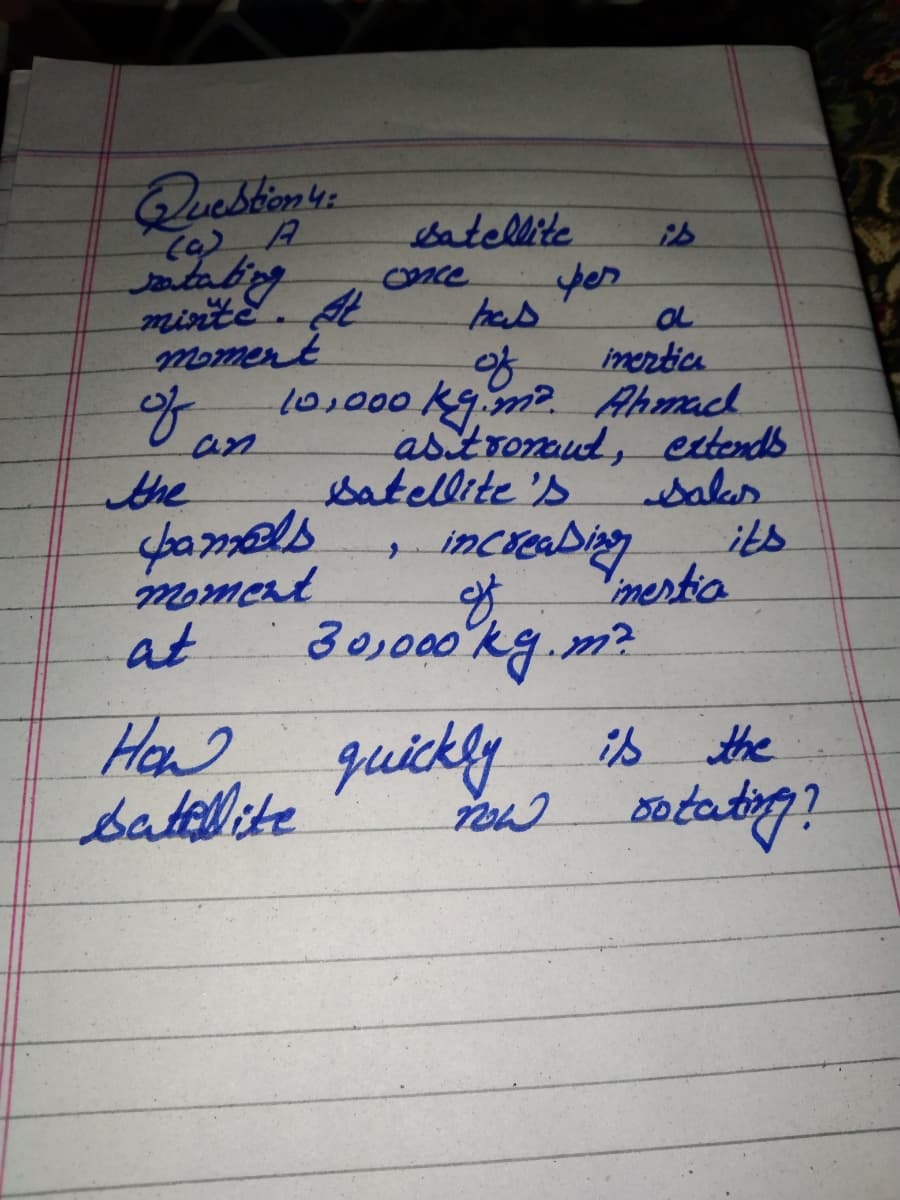 Question 4:
(a) A satellite is
rotating once per
minute. It has a
moment of inertia
of 10,000 kg.m². Ahmad
an astronaut, extends
the satellite's solar
pannels, increasing its
moment of inertia
at 30,000 kg.m²
How quickly is the
satellite now rotating?